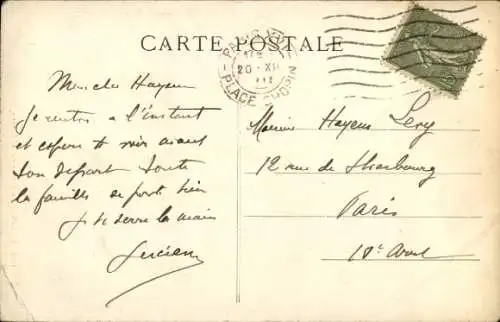 CARTE POSTALE
PARIS
20 - XII
PLACE CHOPIN
Mon cher Hayem
Je rentre à l'instant
et espère te voir avant
ton départ Toute
la famille se porte bien
Je te serre la main
Lucien
Monsieur Hayem Levy
12 rue de Strasbourg
Paris
10e Arrt